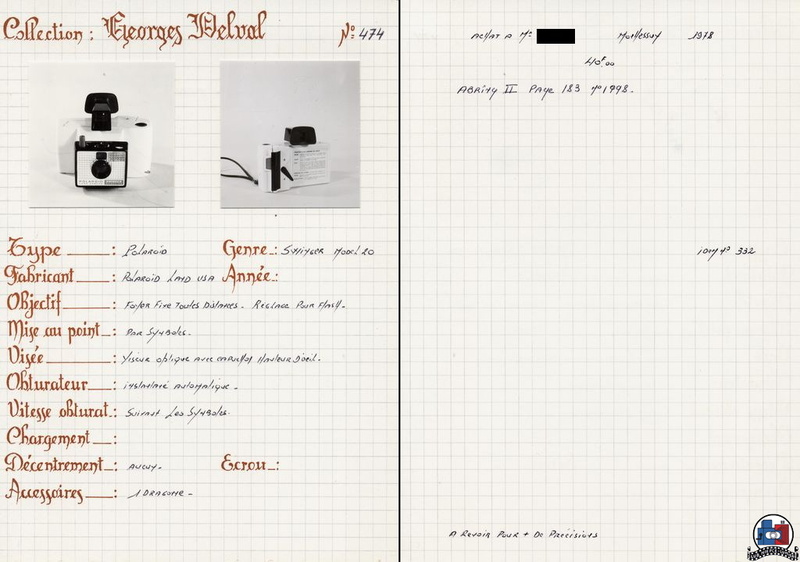 Collection : Georges Delval N°: 474
Type : Polaroid Genre : Swinger Model 20
Fabricant : Polaroid Land USA Année :
Objectif : Foyer Fixe Toutes Distances - Réglage Pour Flash -
Mise au point : Par Symboles -
Visée : Viseur oblique avec Hauteur D'oeil -
Obturateur : instantané automatique -
Vitesse obturat. : Suivant Les Symboles -
Chargement :
Décentrement : Aucun - Ecrou :
Accessoires : 1 Dragonne -
Achat A Mr 1978
40F00
ABring II Page 183 n° 1998 -
n° 332
A Revoir Pour + De Précisions